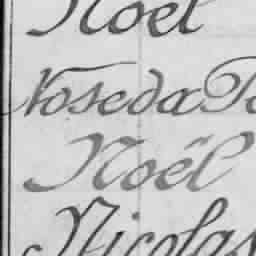 Noël
Noseda
Noël
Nicolas